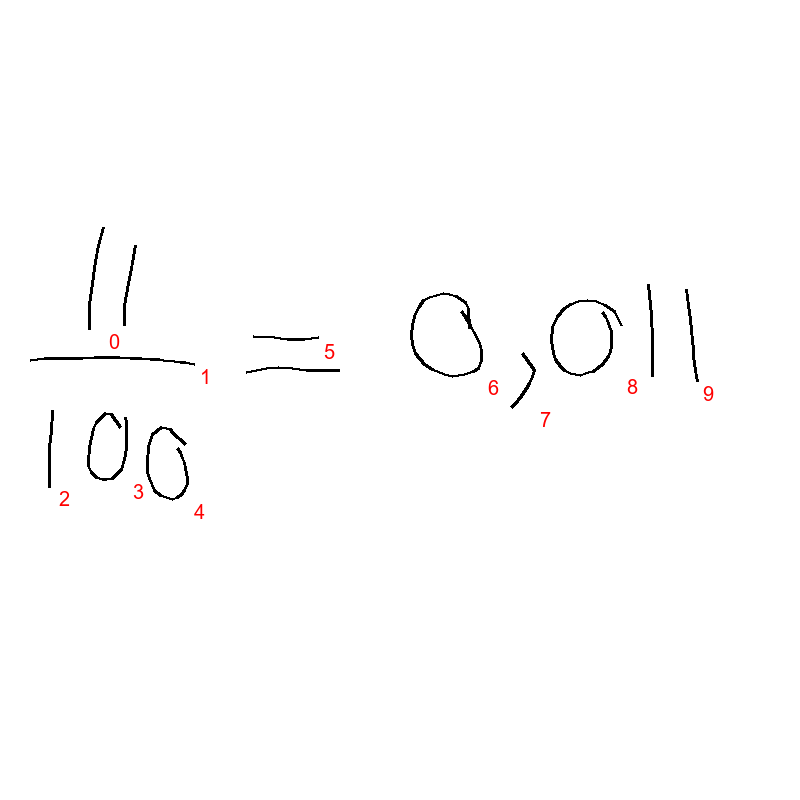 11
100 = 0,011
0
1
2
3
4
5
6
7
8
9